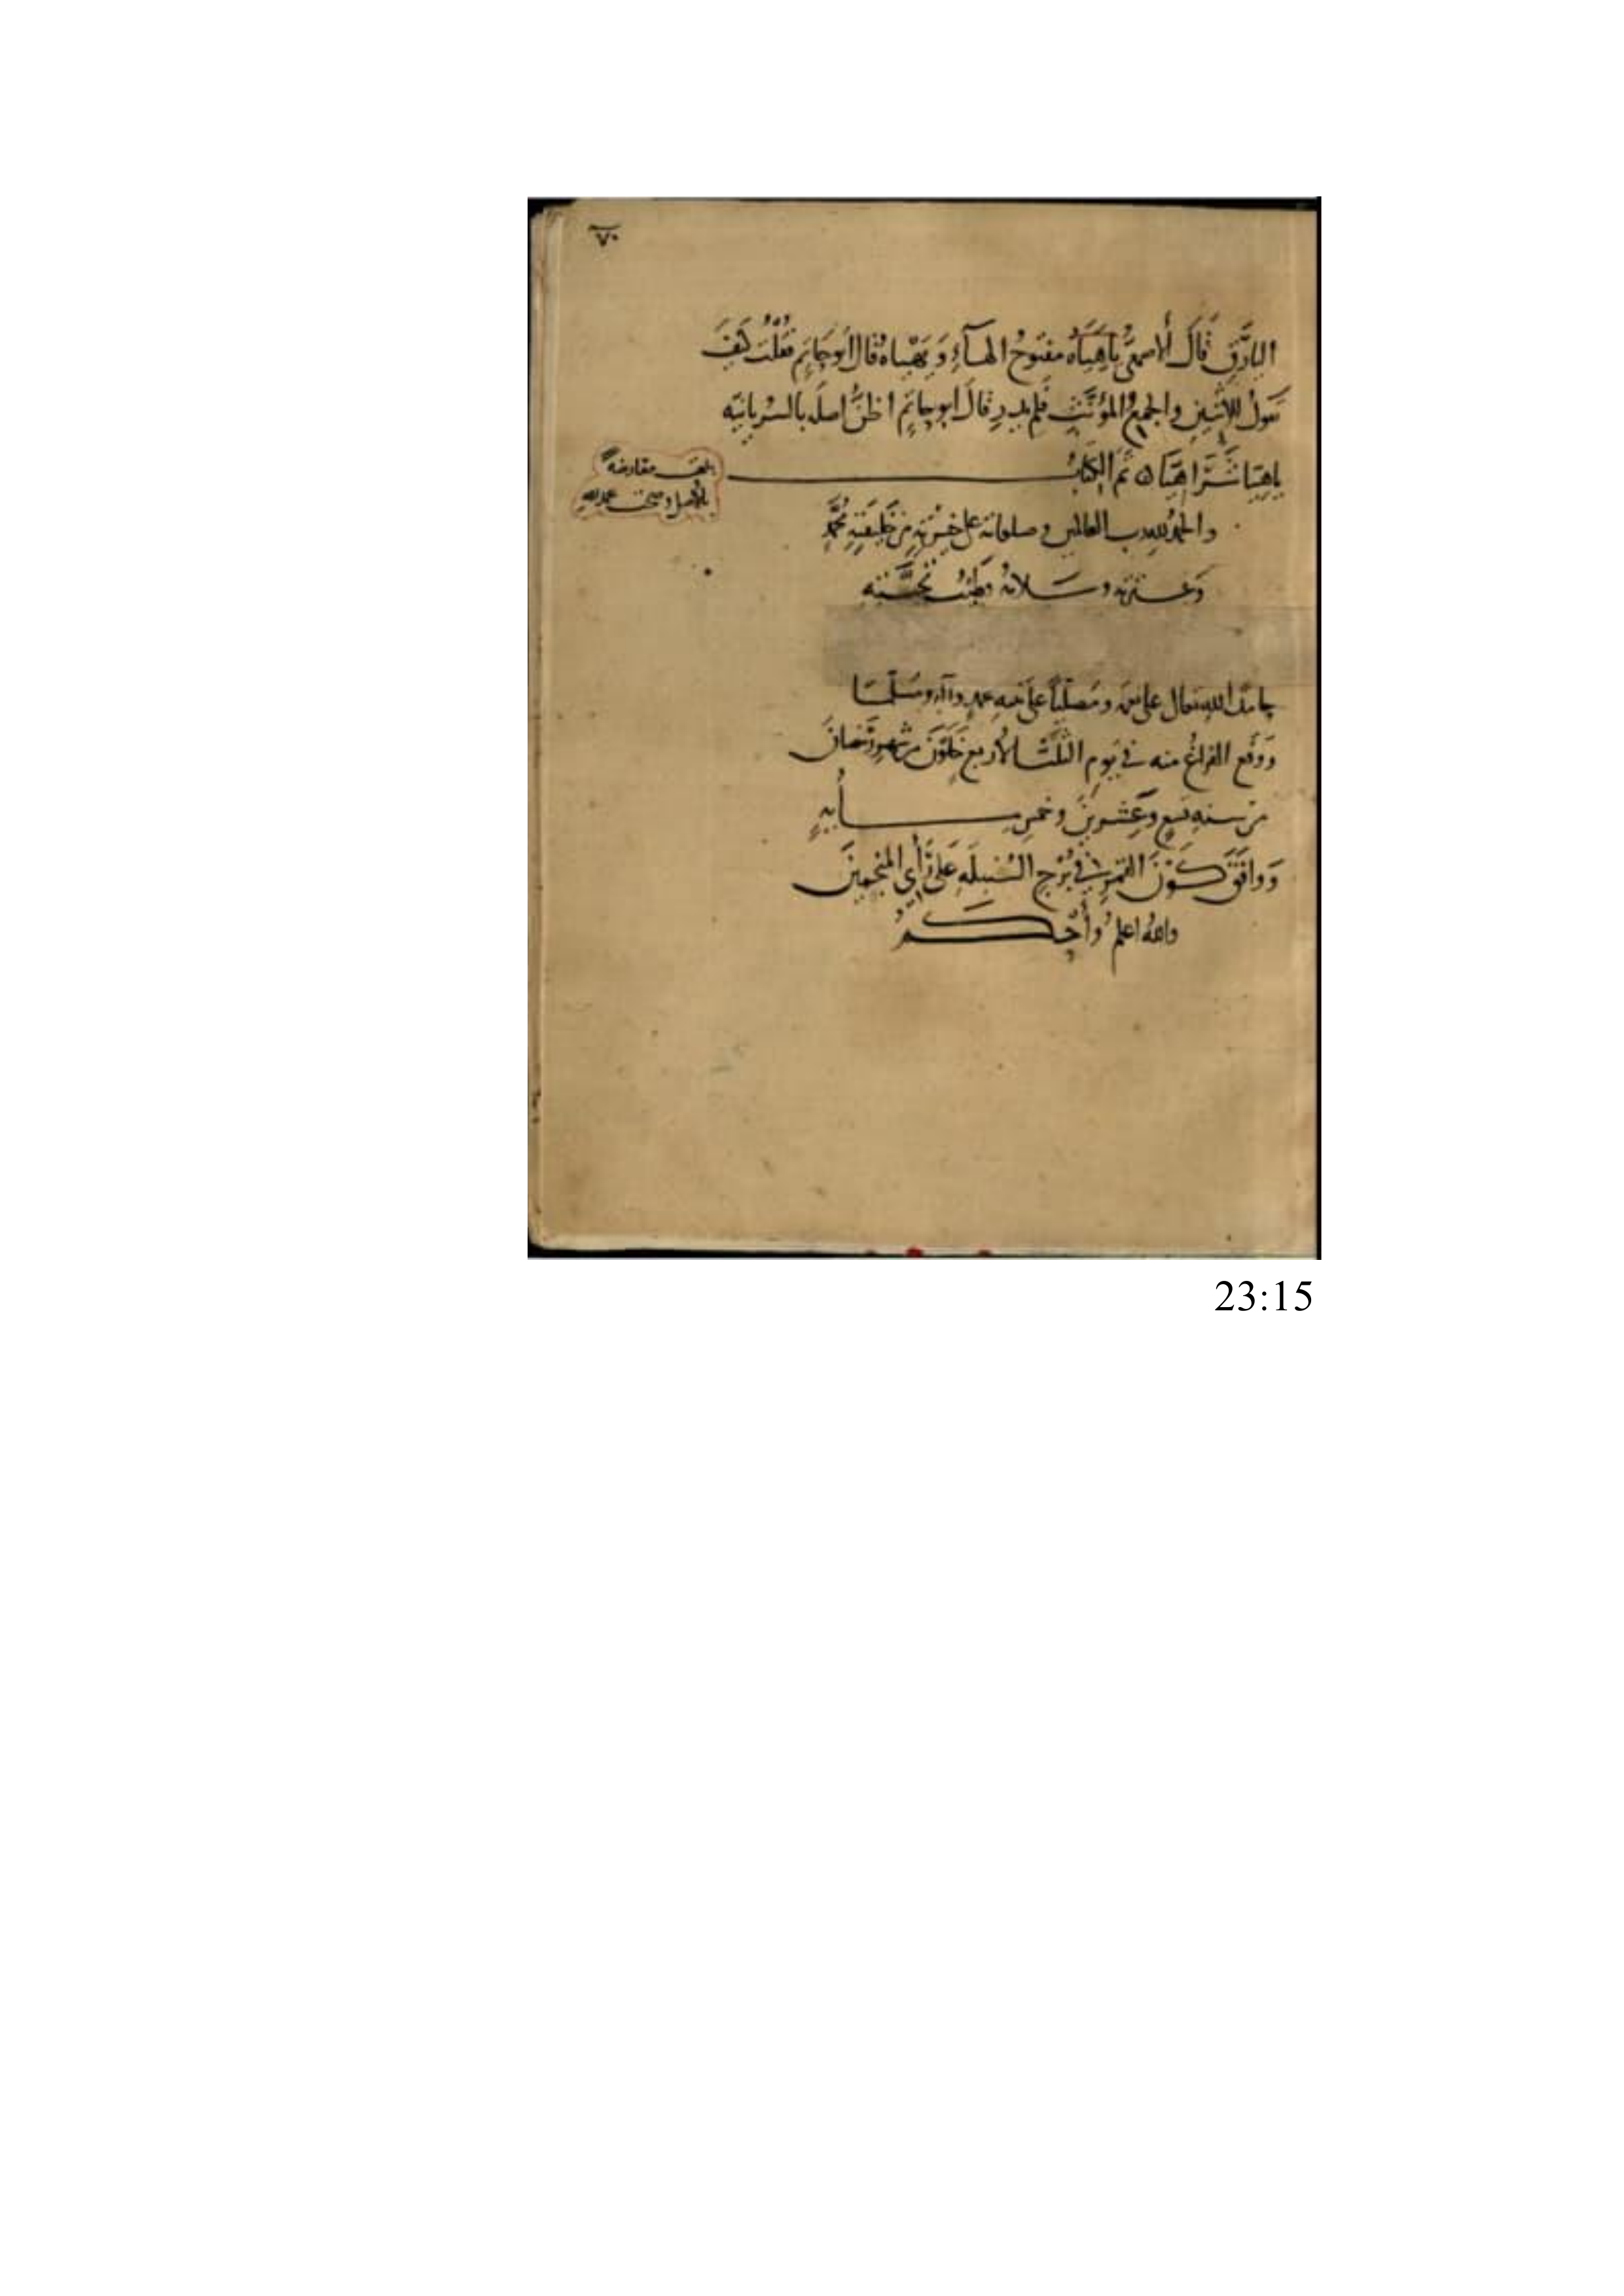 ٧٠
البادق قَالَ الأصمعيُّ ياهَيَاه مفتوحُ الهاءِ وَيَهْيَاه قال أبو حاتِم فقُلْتُ كيفَ
تقولُ للاثنينِ والجميعِ والمؤنَّثِ فلم يدرِ قال أبو حاتِم اظنُّ اصلَه بالسُّريانيَّه
ياهيَا شَرَاهيَا ه تمَ الكِتابُ
مقارضة
بالأصل وصح بحمد الله
والحمدُ للهِ رب العالمين وصلواته على خيرتِهِ من خليقتِهِ مُحَمَّدٍ
وَعترته وسلامُه
حامدًا لله تعالى على نعمه ومصلّيًا على نبيه محمد وآله ومُسلّمًا
وَوقع الفراغُ منه في يوم الثلثا لأربع خَلَوْنَ من شهر رمضانَ
من سنه تسعٍ وعِشرينَ وخمس مأيهٍ
وَوافَقَ كَوْنَ القمرِ في بُرْجِ السُنبلَهِ عَلى رأي المنجمينَ
والله اعلمُ وأَحْكَمُ
23:15